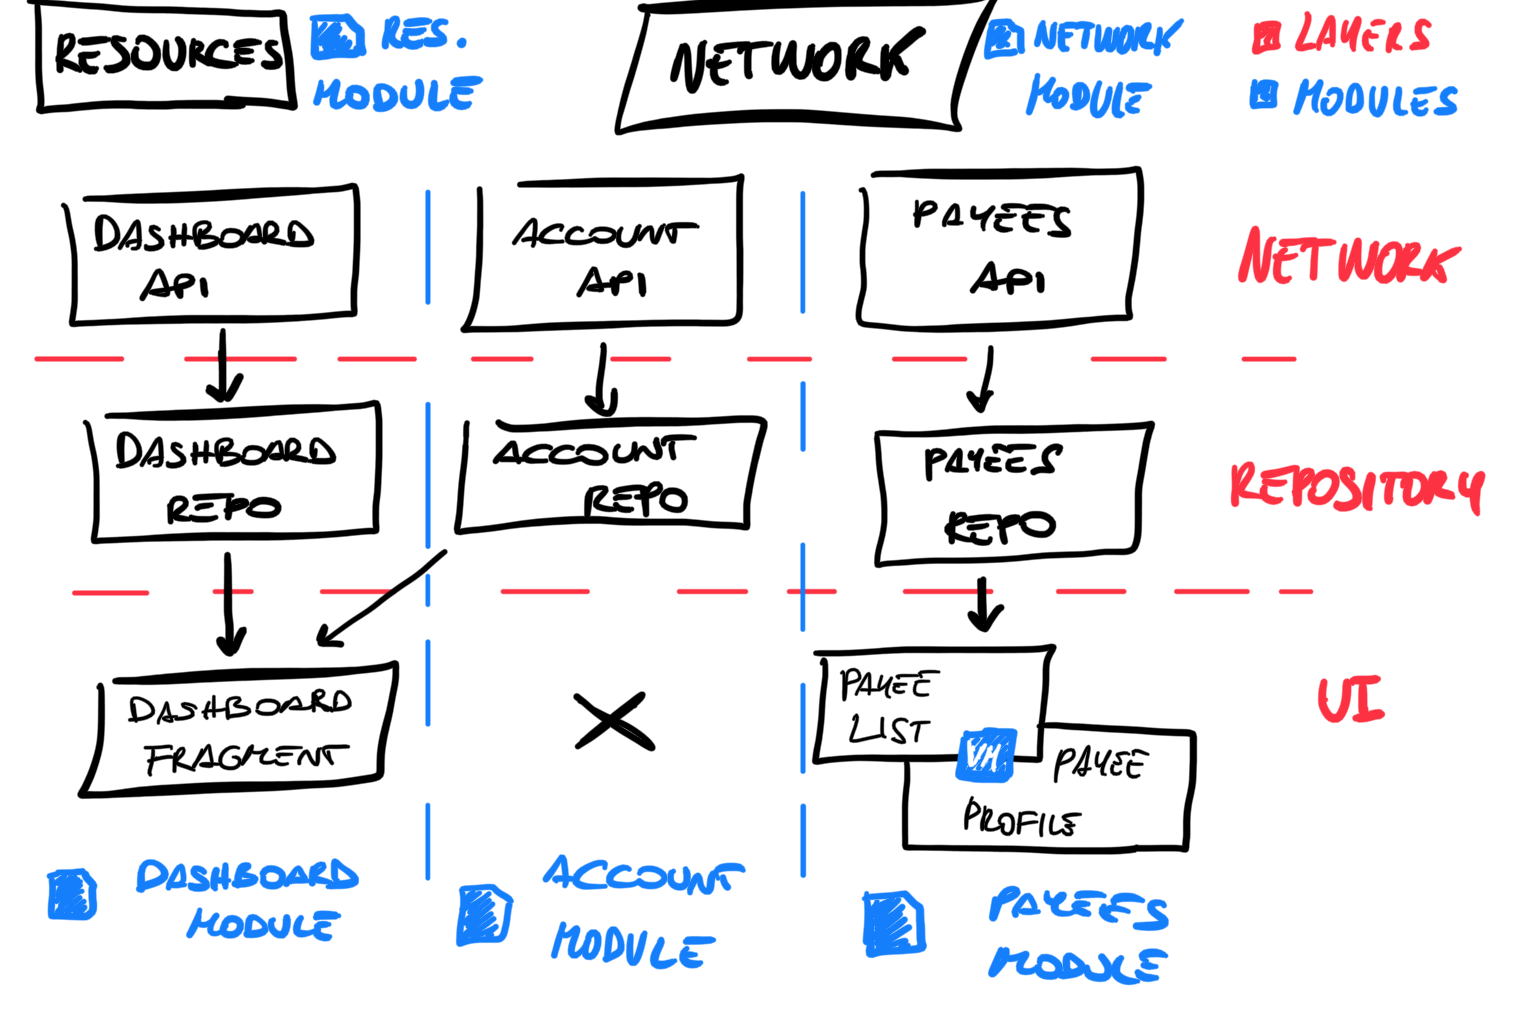 RESOURCES
RES.
MODULE
NETWORK
NETWORK
MODULE
LAYERS
MODULES
DASHBOARD
API
ACCOUNT
API
PAYEES
API
NETWORK
DASHBOARD
REPO
ACCOUNT
REPO
PAYEES
REPO
REPOSITORY
DASHBOARD
FRAGMENT
PAYEE
LIST
VM
PAYEE
PROFILE
UI
DASHBOARD
MODULE
ACCOUNT
MODULE
PAYEES
MODULE